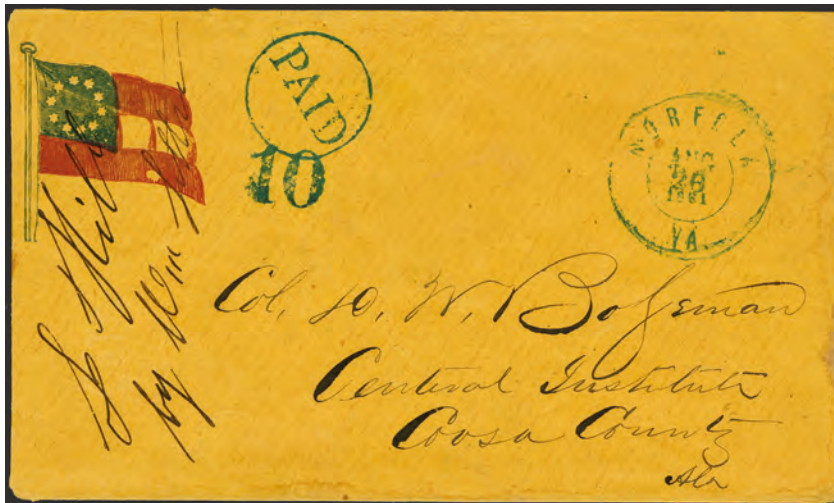 PAID
10
NORFOLK
AUG
28
1861
VA.
Col. D. W. Bozeman
Central Institute
Coosa County
Ala
by